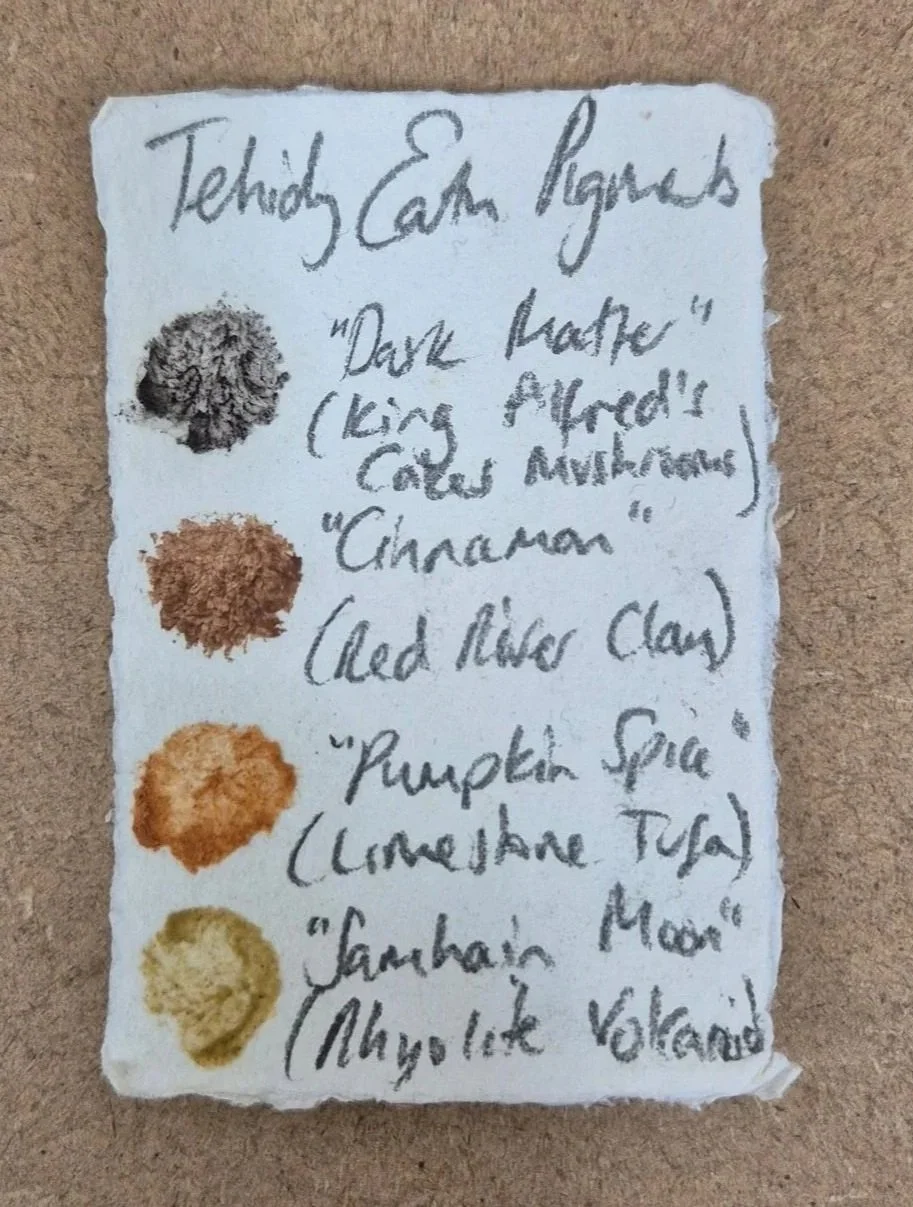 Tehidy Earth Pigments
"Dark Matter"
(King Alfred's
Cakes Mushrooms)
"Cinnamon"
(Red River Clay)
"Pumpkin Spice"
(Limestone Tufa)
"Samhain Moon"
(Rhyolite Volcanic